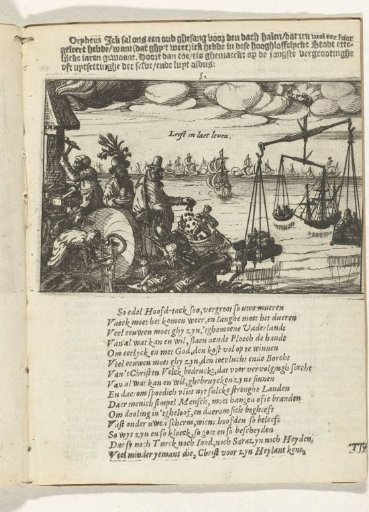 Orpheus Ick sal ons een oud ghesang voor den dach halen/dat ick wel eer hier
geleert hebbe/want (dat ghy't weet) ick hebde in dese hooghloffelijcke Stadt ette-
lijcke iaren gewoont. Hoort dan toe/tis ghemaeckt op de jongste vergrootinghe
oft uytsettinghe der selve/ende luyt aldus:
5.
Leeft en laet leven.
So edel Hoofd-tack soo, vergroot so uwe mueren
Vaeck moet het komen weer, en langhe moet het dueren
Veel eeuwen moet ghy zyn, 'tghemeene Vaderlandt
Van al wat kan en wil, slaen aende Ploech de handt
Om eerlyck en met God, den kost vol op te winnen
Veel eeuwen moet ghy zyn, den toevlucht ende Borcht
Van 't Christen Volck bedruckt, dat voor vervolgingh sorcht
Van al wat kan en wil, ghebruycken zyne sinnen
En daerom spoedich vliet uyt sulcke strenghe Landen
Daer menich simpel Mensch, moet hangen ofte branden
Om dooling in 'tgheloof, en daerom sich begheeft
Vast onder uwen scherm, wiens hoofden so beleeft
So wys zyn en so kloeck, so goet en so bescheyden
Dat sy noch Turck noch Iood, noch Sarazyn noch Heyden,
Veel minder yemant die, Christ voor zyn Heylant kent.